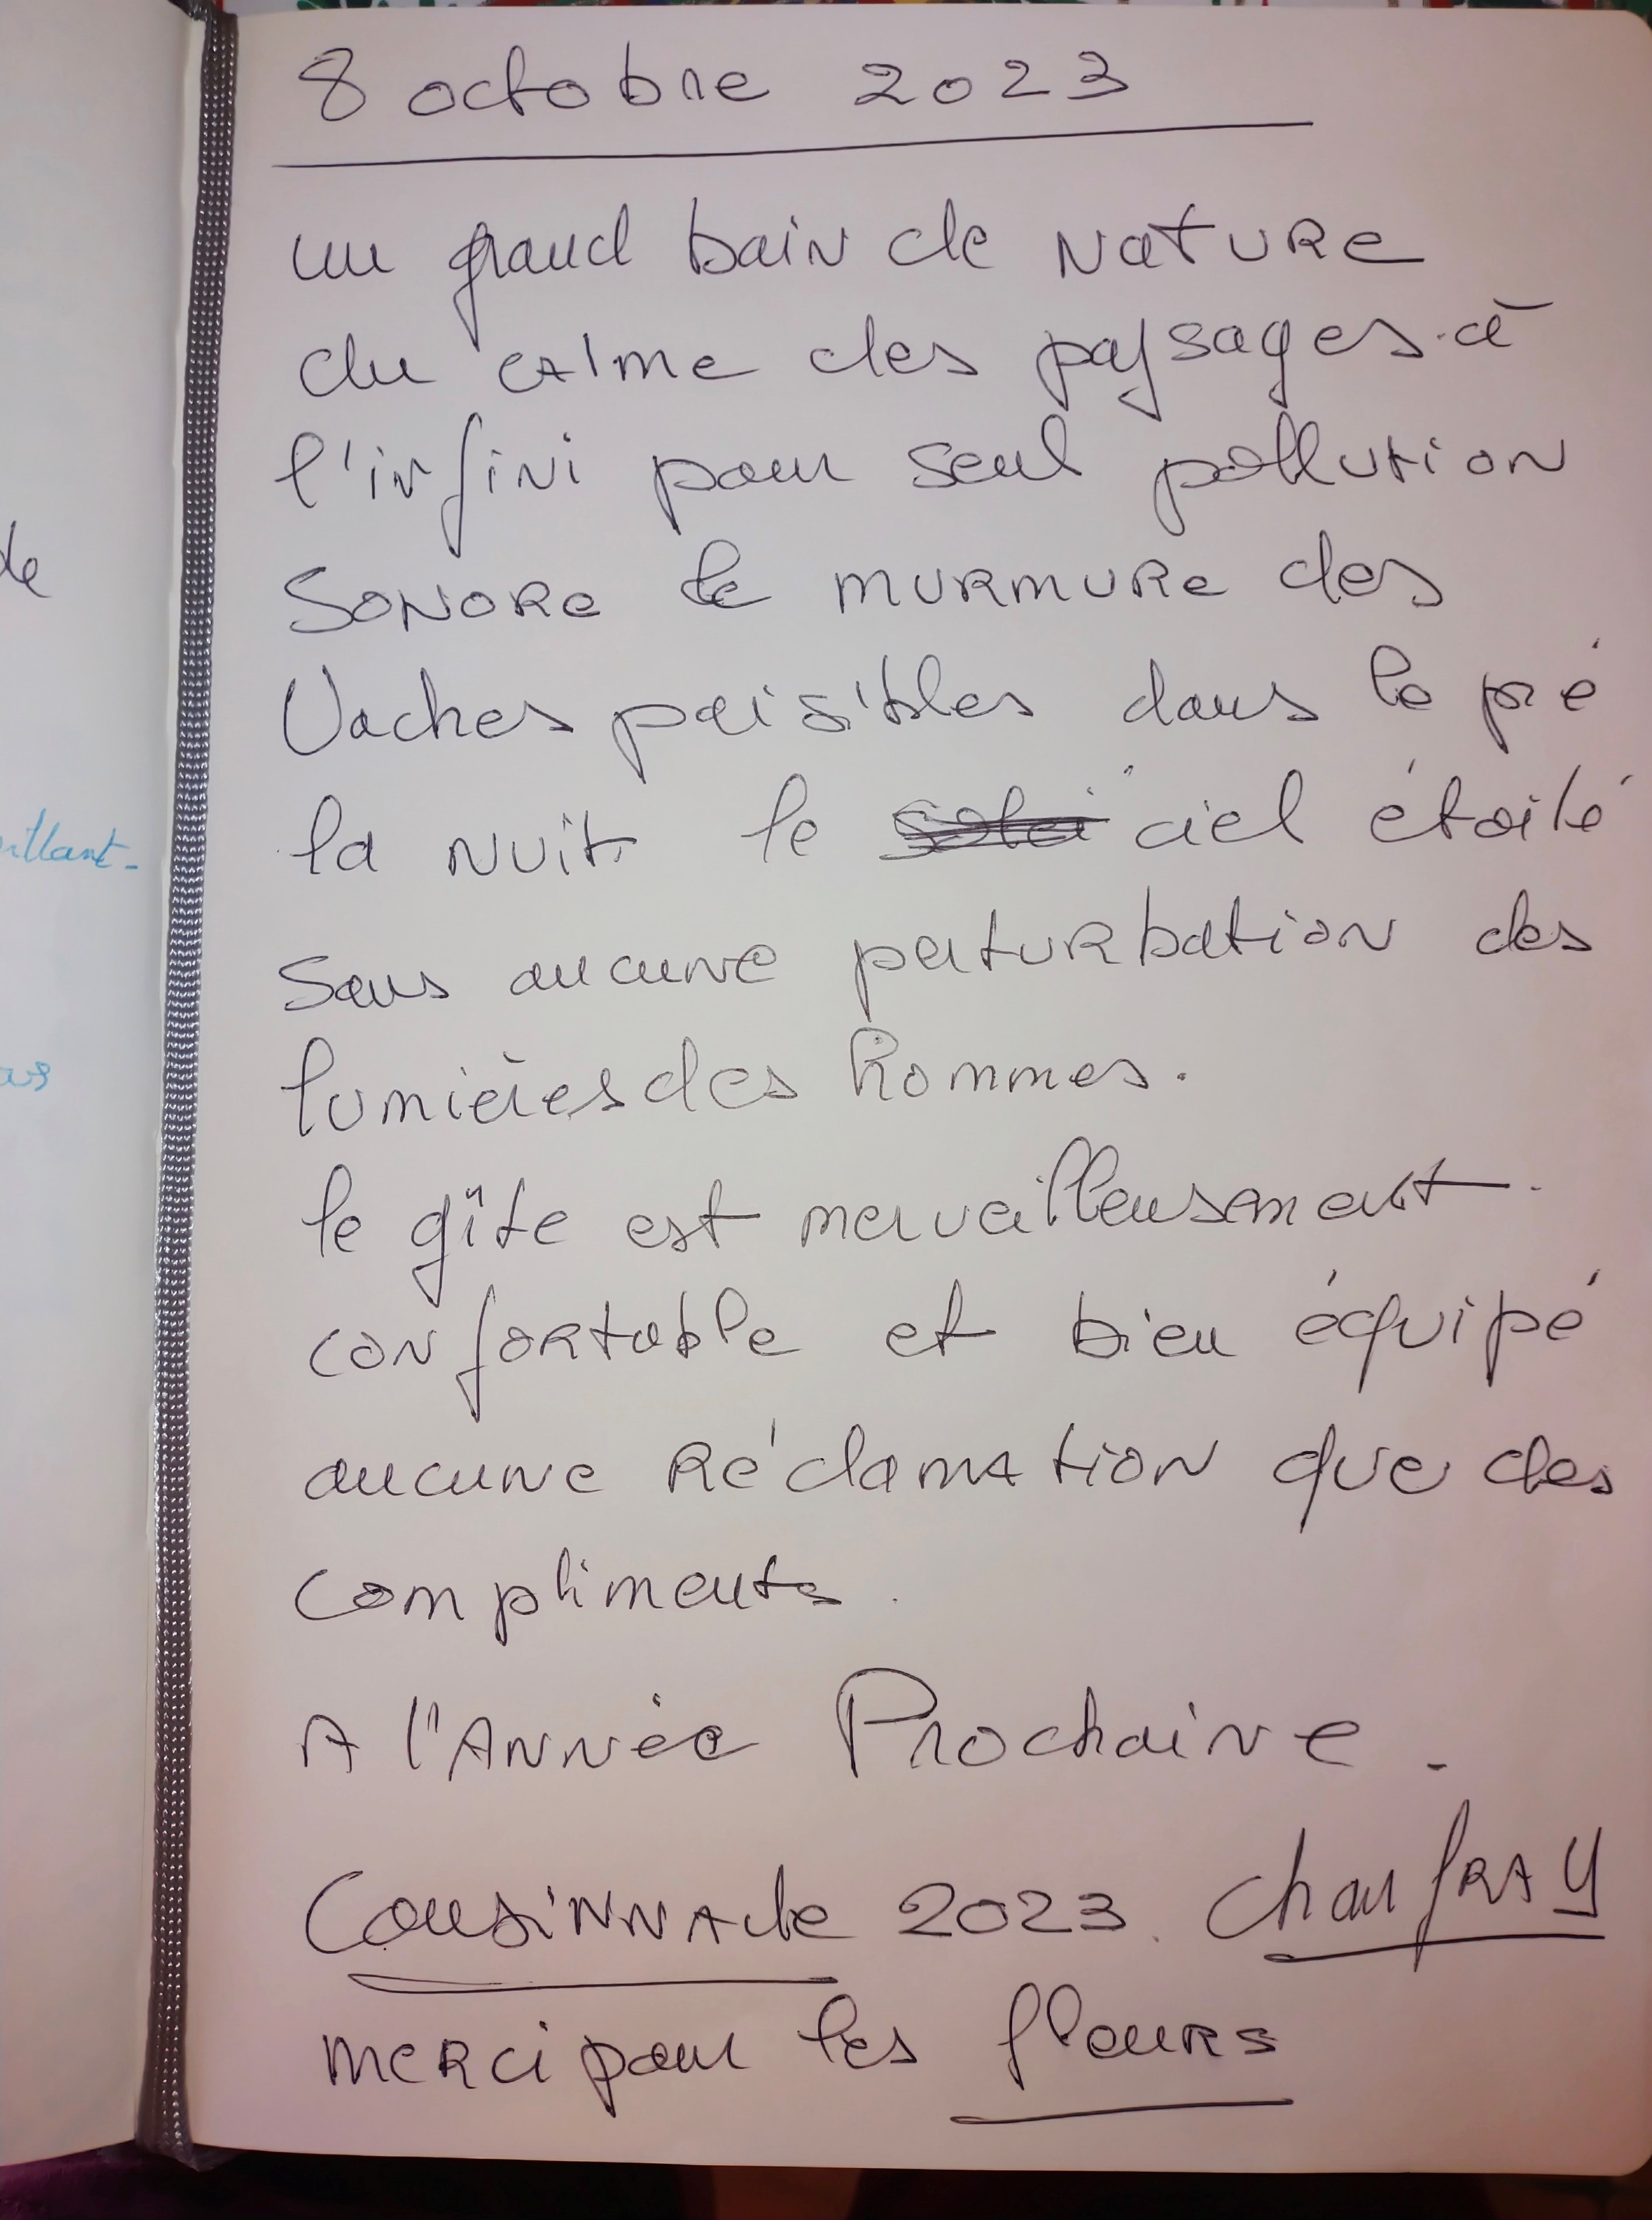 8 octobre 2023
un grand bain de NATURE
du calme des paysages à
l'infini pour seul pollution
SONORE le MURMURE des
Vaches paisibles dans le pré
la NUIT le ciel étoilé
sans aucune perturbation des
lumières des hommes.
le gîte est merveilleusement.
confortable et bien équipé
aucune Réclamation que des
compliments.
A l'Année Prochaine.
CousiNNAde 2023. ChaufRAY
merci pour les fleurs
de
illant-